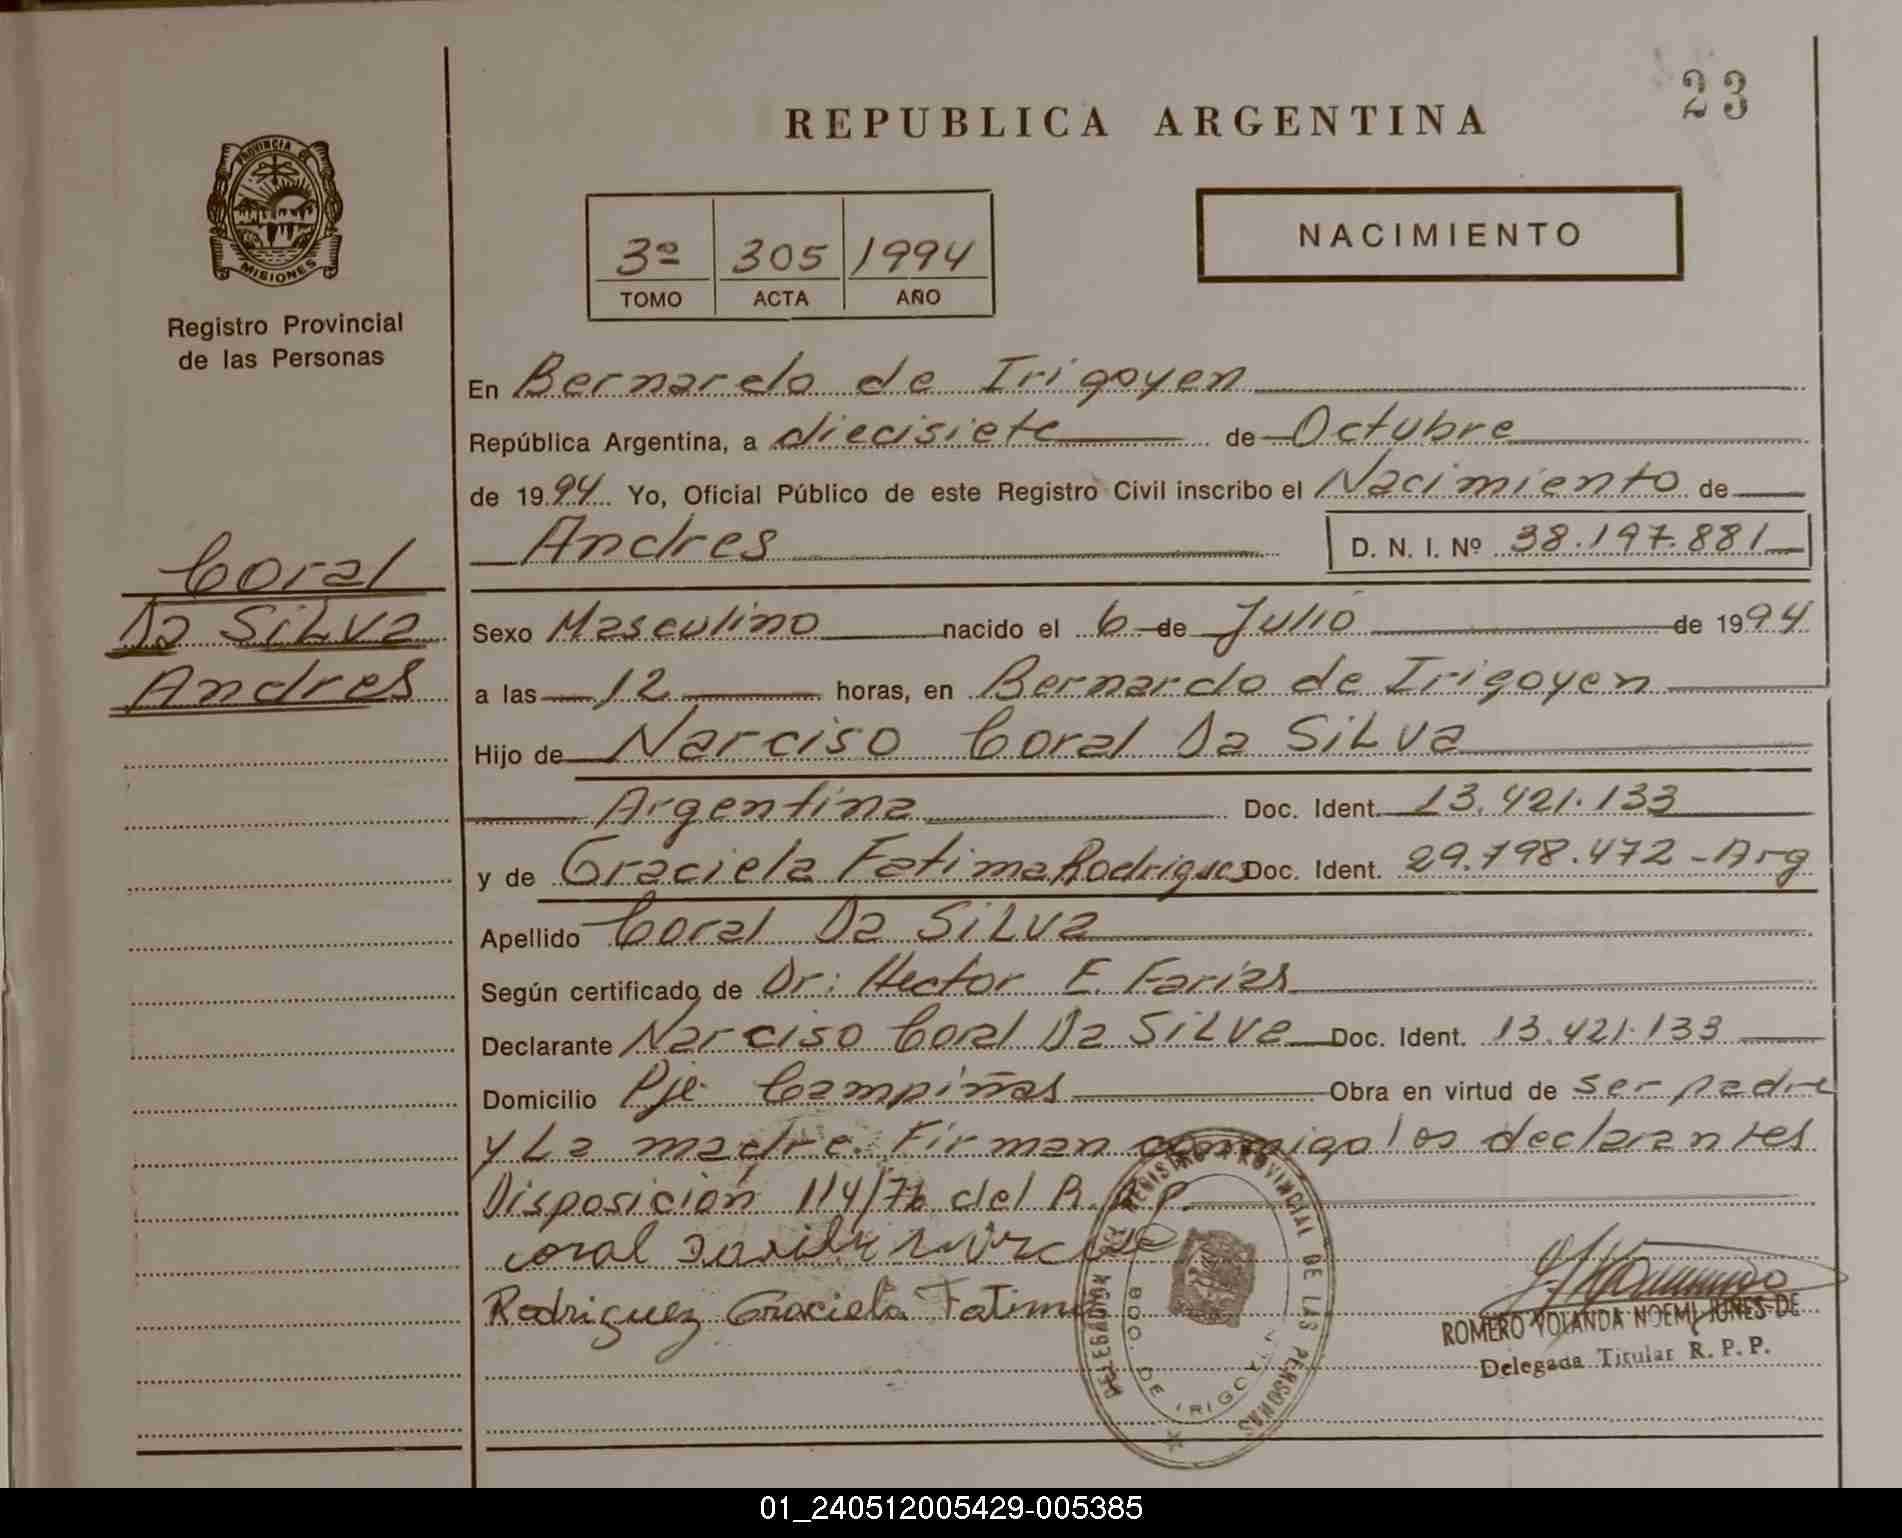 23
REPUBLICA ARGENTINA
PROVINCIA DE
MISIONES
Registro Provincial
de las Personas
3º 305 1994
TOMO ACTA AÑO
NACIMIENTO
En Bernardo de Irigoyen
República Argentina, a diecisiete de Octubre
de 1994 Yo, Oficial Público de este Registro Civil inscribo el Nacimiento de
Andres D. N. I. Nº 38.197.881
Coral
Da SiLva
Andres
Sexo Masculino nacido el 6 de Julio de 1994
a las 12 horas, en Bernardo de Irigoyen
Hijo de Narciso Coral Da SiLva
Argentina Doc. Ident. 13.421.133
y de Graciela Fatima Rodrigues Doc. Ident. 29.798.472 - Arg
Apellido Coral Da SiLva
Según certificado de Dr: Hector E. Farias
Declarante Narciso Coral Da SiLva Doc. Ident. 13.421.133
Domicilio Pje Campiñas Obra en virtud de ser padre
y La madre. Firman conmigo los declarantes
Disposición 114/72 del R. P. P.
coral
Rodriguez Graciela Fatima
DELEGACION DEL REGISTRO PROVINCIAL DE LAS PERSONAS
BDO. DE IRIGOYEN
ROMERO YOLANDA NOEMI JONES DE
Delegada Titular R. P. P.
01_240512005429-005385